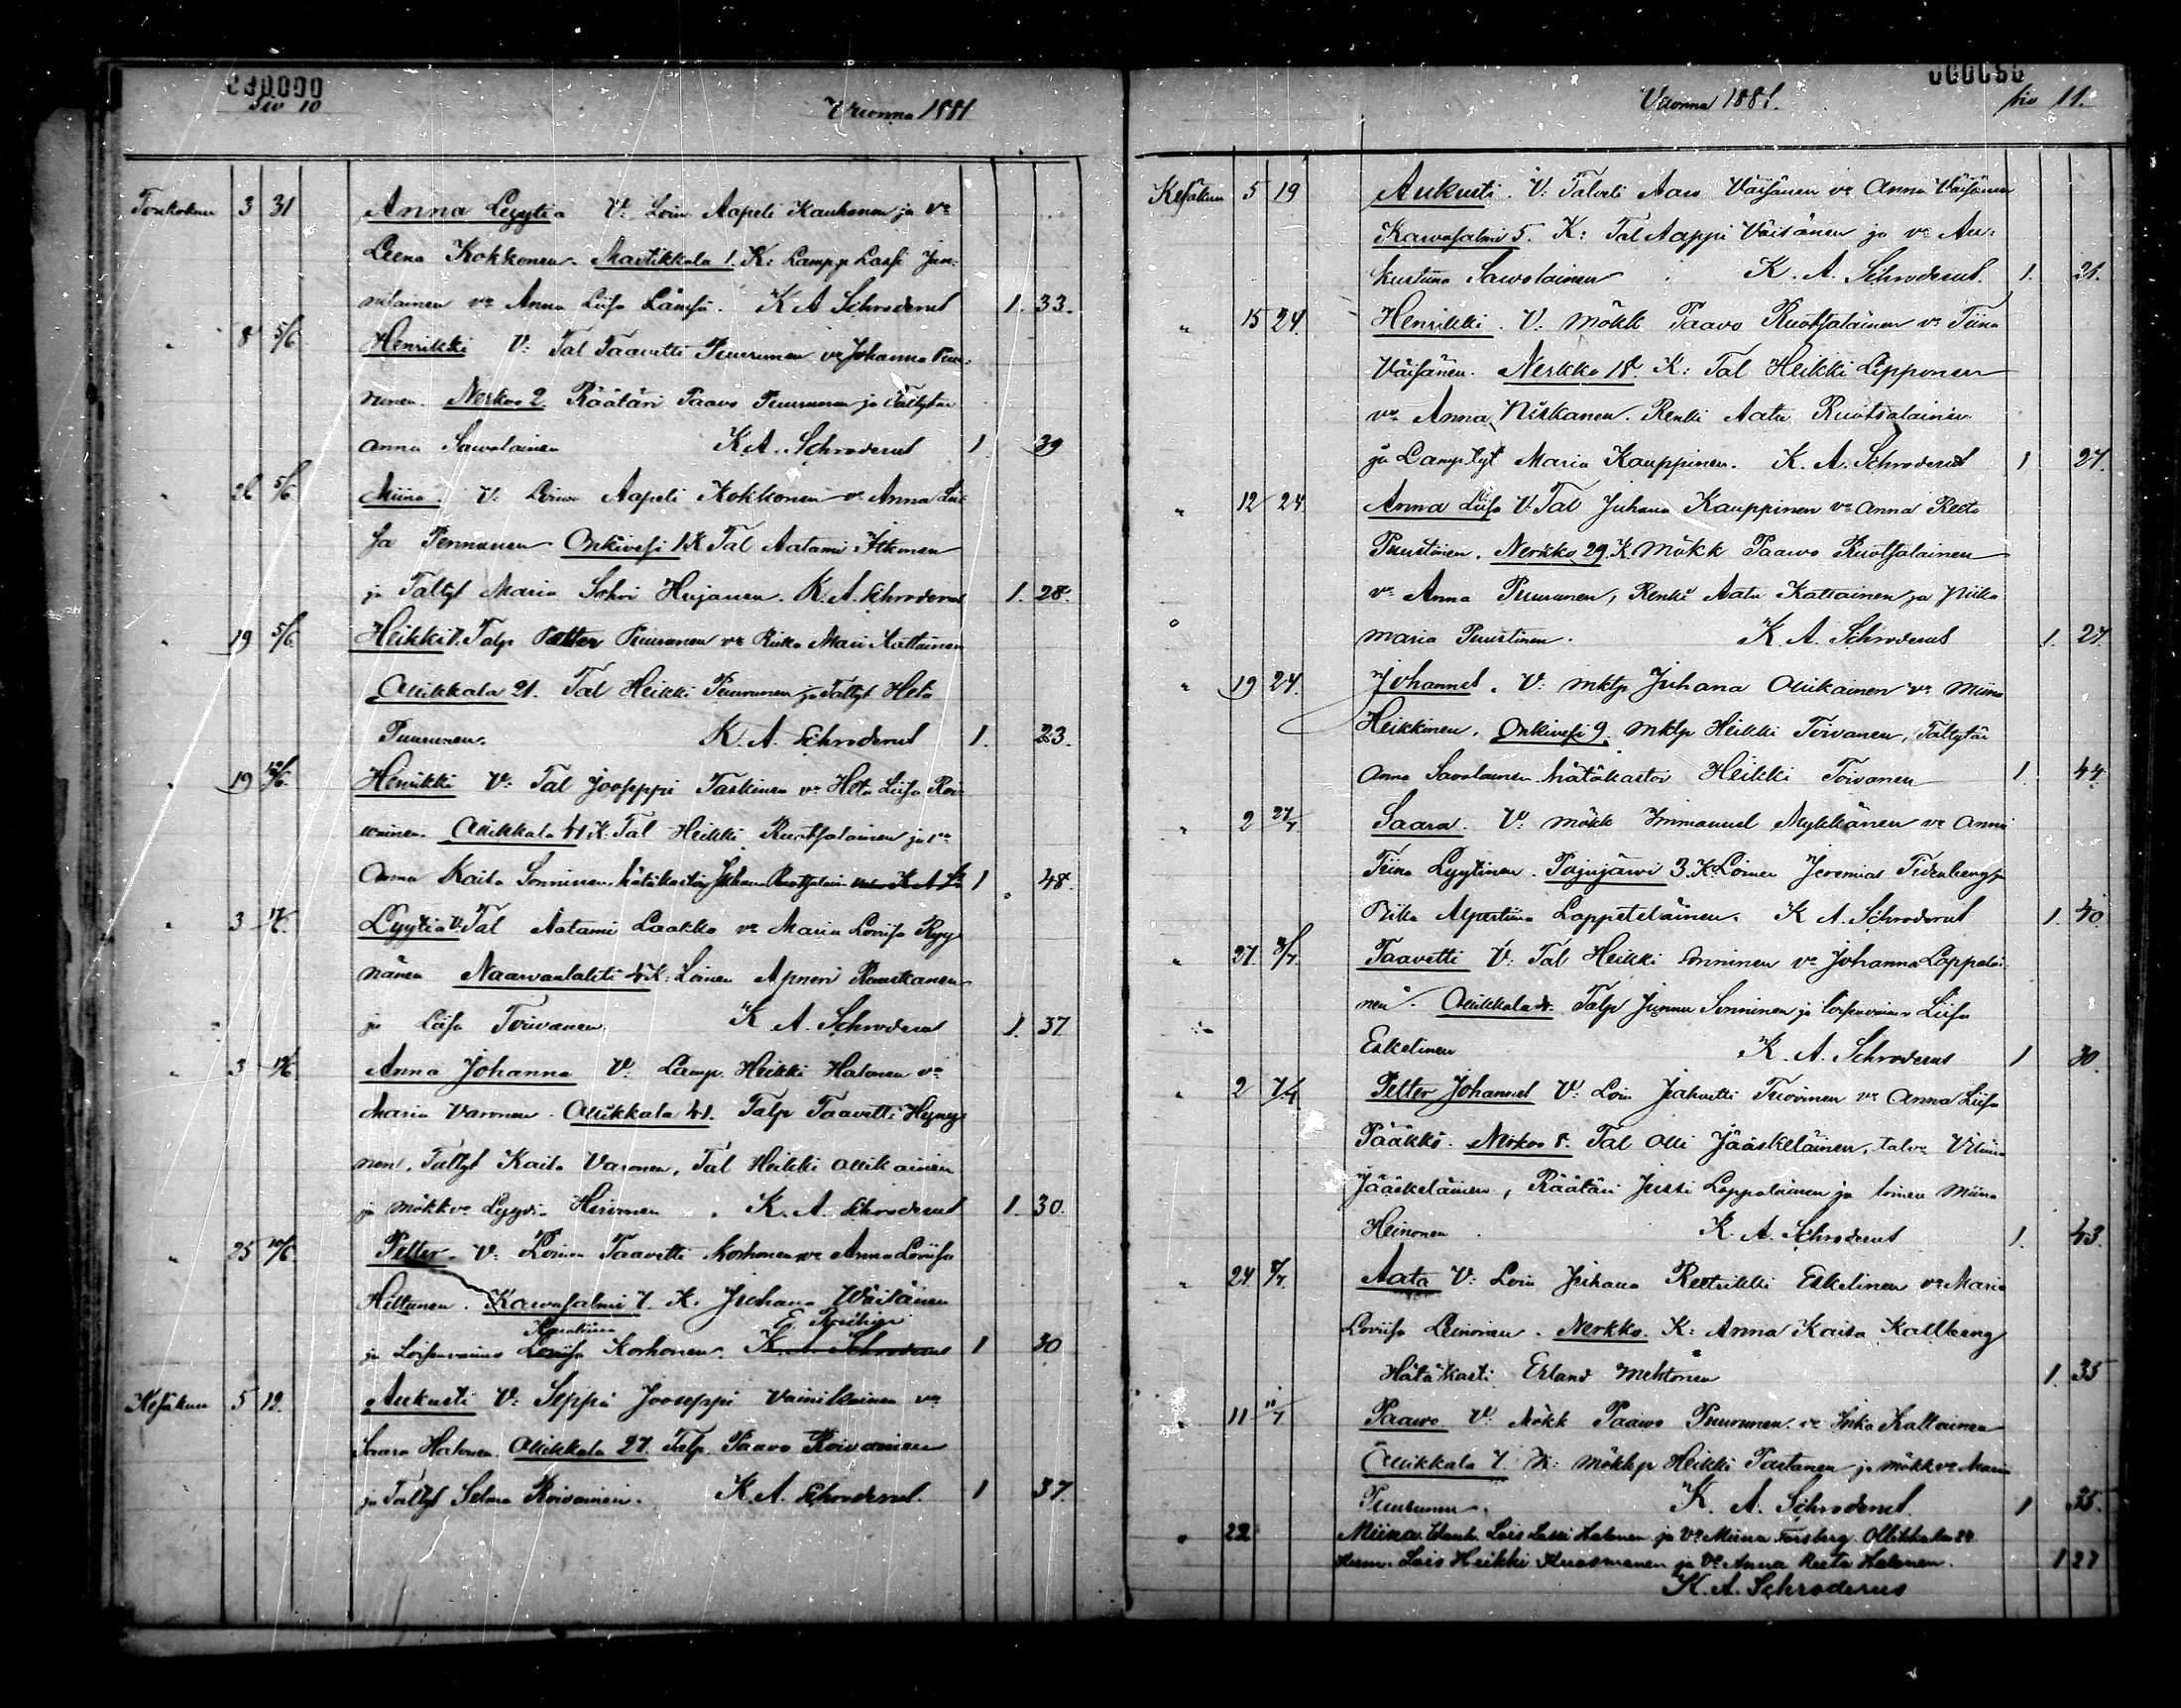 Siv 10
Vuonna 1881
Toukokuu 3 31 Anna Lyytia V: Loin Aapeli Kauhanen ja vo
Leena Kokkonen. Martikkala 1. K: Lampp Lassi Jun:
nilainen vo Anna Liisa Länsä. K A Schroderus 1. 33.
" 8 5/6 Henrikki V: Tal Taavetti Puurunen vo Johanna Puu:
runen. Nerkoo 2. Räätäri Paavo Puurunen ja Taltytär
Anna Sawolainen K A. Schroderus 1 39
" 26 5/6 Miina. V: Loinen Aapeli Kokkonen vo Anna Lii
sa Pennanen Onkivesi 1 K Tal Aatami Itkonen
ja Taltyt Maria Sohvi Hujanen. K. A. Schroderus 1. 28.
" 19 5/6 Heikki V. Talp Petter Puurunen vo Riika Mari Kattainen
Ollikkala 21. Tal Heikki Puurunen ja Taltyt Heta
Puurunen. K. A. Schroderus 1. 23.
" 19 12/6 Henrikki V: Tal Jooseppi Taskinen vo Heta Liisa Roi
wainen. Ollikkala 41 K. Tal Heikki Ruotsalainen ja vo
Anna Kaisa Sonninen. hätäkastoi Juhana Ruotsalain 1 48.
" 3 Lyytia V: Tal Aatami Laakko vo Maria Loviisa Ryy
nänen Naarwanlahti K: Loinen Apneri Ruuskanen
ja Liisa Toivanen K A. Schroderus 1. 37
" 3 Anna Johanna V: Lamp. Heikki Halonen vo
Maria Varonen. Ollikkala 41. Talp Taavetti Hyyry
nen, Taltyt Kaisa Varonen, Tal Heikki Ollikainen
ja mökkvo Lyydi Hirvonen. K. A. Schroderus 1. 30.
" 25 Petter. V: Loinen Taavetti Korhonen vo Anna Loviisa
Hiltunen. Kawasalmi 7. K. Juhana Wäisänen
ja Loisenvaimo Loviisa Korhonen. K. A. Schroderus 1 30
Kesäkuu 5 12. Aukusti V: Seppä Jooseppi Vainikainen vo
Saara Halonen. Ollikkala 27. Talp Paavo Roivainen
ja Taltyt Selma Roivainen. K. A. Schroderus. 1 37.
Vuonna 1881. siv 11.
Kesäkuu 5 19 Aukusti. V: Talveli Aaro Väisänen vo Anna Väisänen
Kawasalmi 5. K: Tal Aappi Väisänen ja vo Au:
kustiina Sawolainen K. A. Schroderus. 1. 21.
" 15 24. Henrikki. V. Mökk Paavo Ruotsalainen vo Tiina
Väisänen. Nerkko 18. K: Tal Heikki Lipponen
vo Anna Niskanen. Renki Aatu Ruotsalainen
ja Lamp.tyt Maria Kauppinen. K. A. Schroderus 1 27.
" 12 24. Anna Liisa V. Tal Juhana Kauppinen vo Anna Reeta
Puustinen. Nerkko 29. K Mökk Paawo Ruotsalainen
vo Anna Puurunen, Renki Aatu Kattainen ja Piika
Maria Puustinen. K A. Schroderus 1. 27.
" 19 24. Johannes. V: mktp Juhana Ollikainen vo Miina
Heikkinen. Onkivesi 9. mktp Heikki Toivanen, Taltytär
Anna Savolainen hätäkastoi Heikki Toivanen 1. 44.
" 2 27/7 Saara. V: mökk Immanuel Mykkänen vo Anna
Tiina Lyytinen. Pajujärvi 3. K. Loinen Jeremias Tidenberg ja
Piika Alpertiina Loppetelainen. K A. Schroderus 1. 40.
" 27. 3/7. Taavetti V: Tal Heikki Sonninen vo Johanna Lappalai
nen. Ollikkala Talp Junnu Sonninen ja loisenvaimo Liisa
Eskelinen K. A. Schroderus 1 30.
" 2 Petter Johannes V: Loin Jaahvetti Tuovinen vo Anna Liisa
Pääkkö. Nerkoo 8. Tal Olli Jääskeläinen, talvo
Jääskeläinen, Räätäri Jussi Lappalainen ja loinen Miina
Heinonen. K. A. Schroderus 1. 43.
" 24 8/7. Aata V: Loin Juhana Reetrikki Eskelinen vo Maria
Loviisa Leinonen. Nerkko. K: Anna Kaisa Kallberg
Hätäkasti Erland Mehtonen 1. 35
" 11 11/7 Paawo V: Mökk Paawo Puurunen vo Inka Kattainen
Ollikkala 7 K: Mökkp Heikki Partanen ja mökkvo Maria
Puurunen. K. A. Schroderus. 1 35.
" 22 Miina. Lois Lassi Halonen ja Vo Miina Forsberg. Ollikkala 24
Kumm. Lois Heikki Kuosmanen ja Vo Anna Reeta Halonen. 1 27
K. A. Schroderus